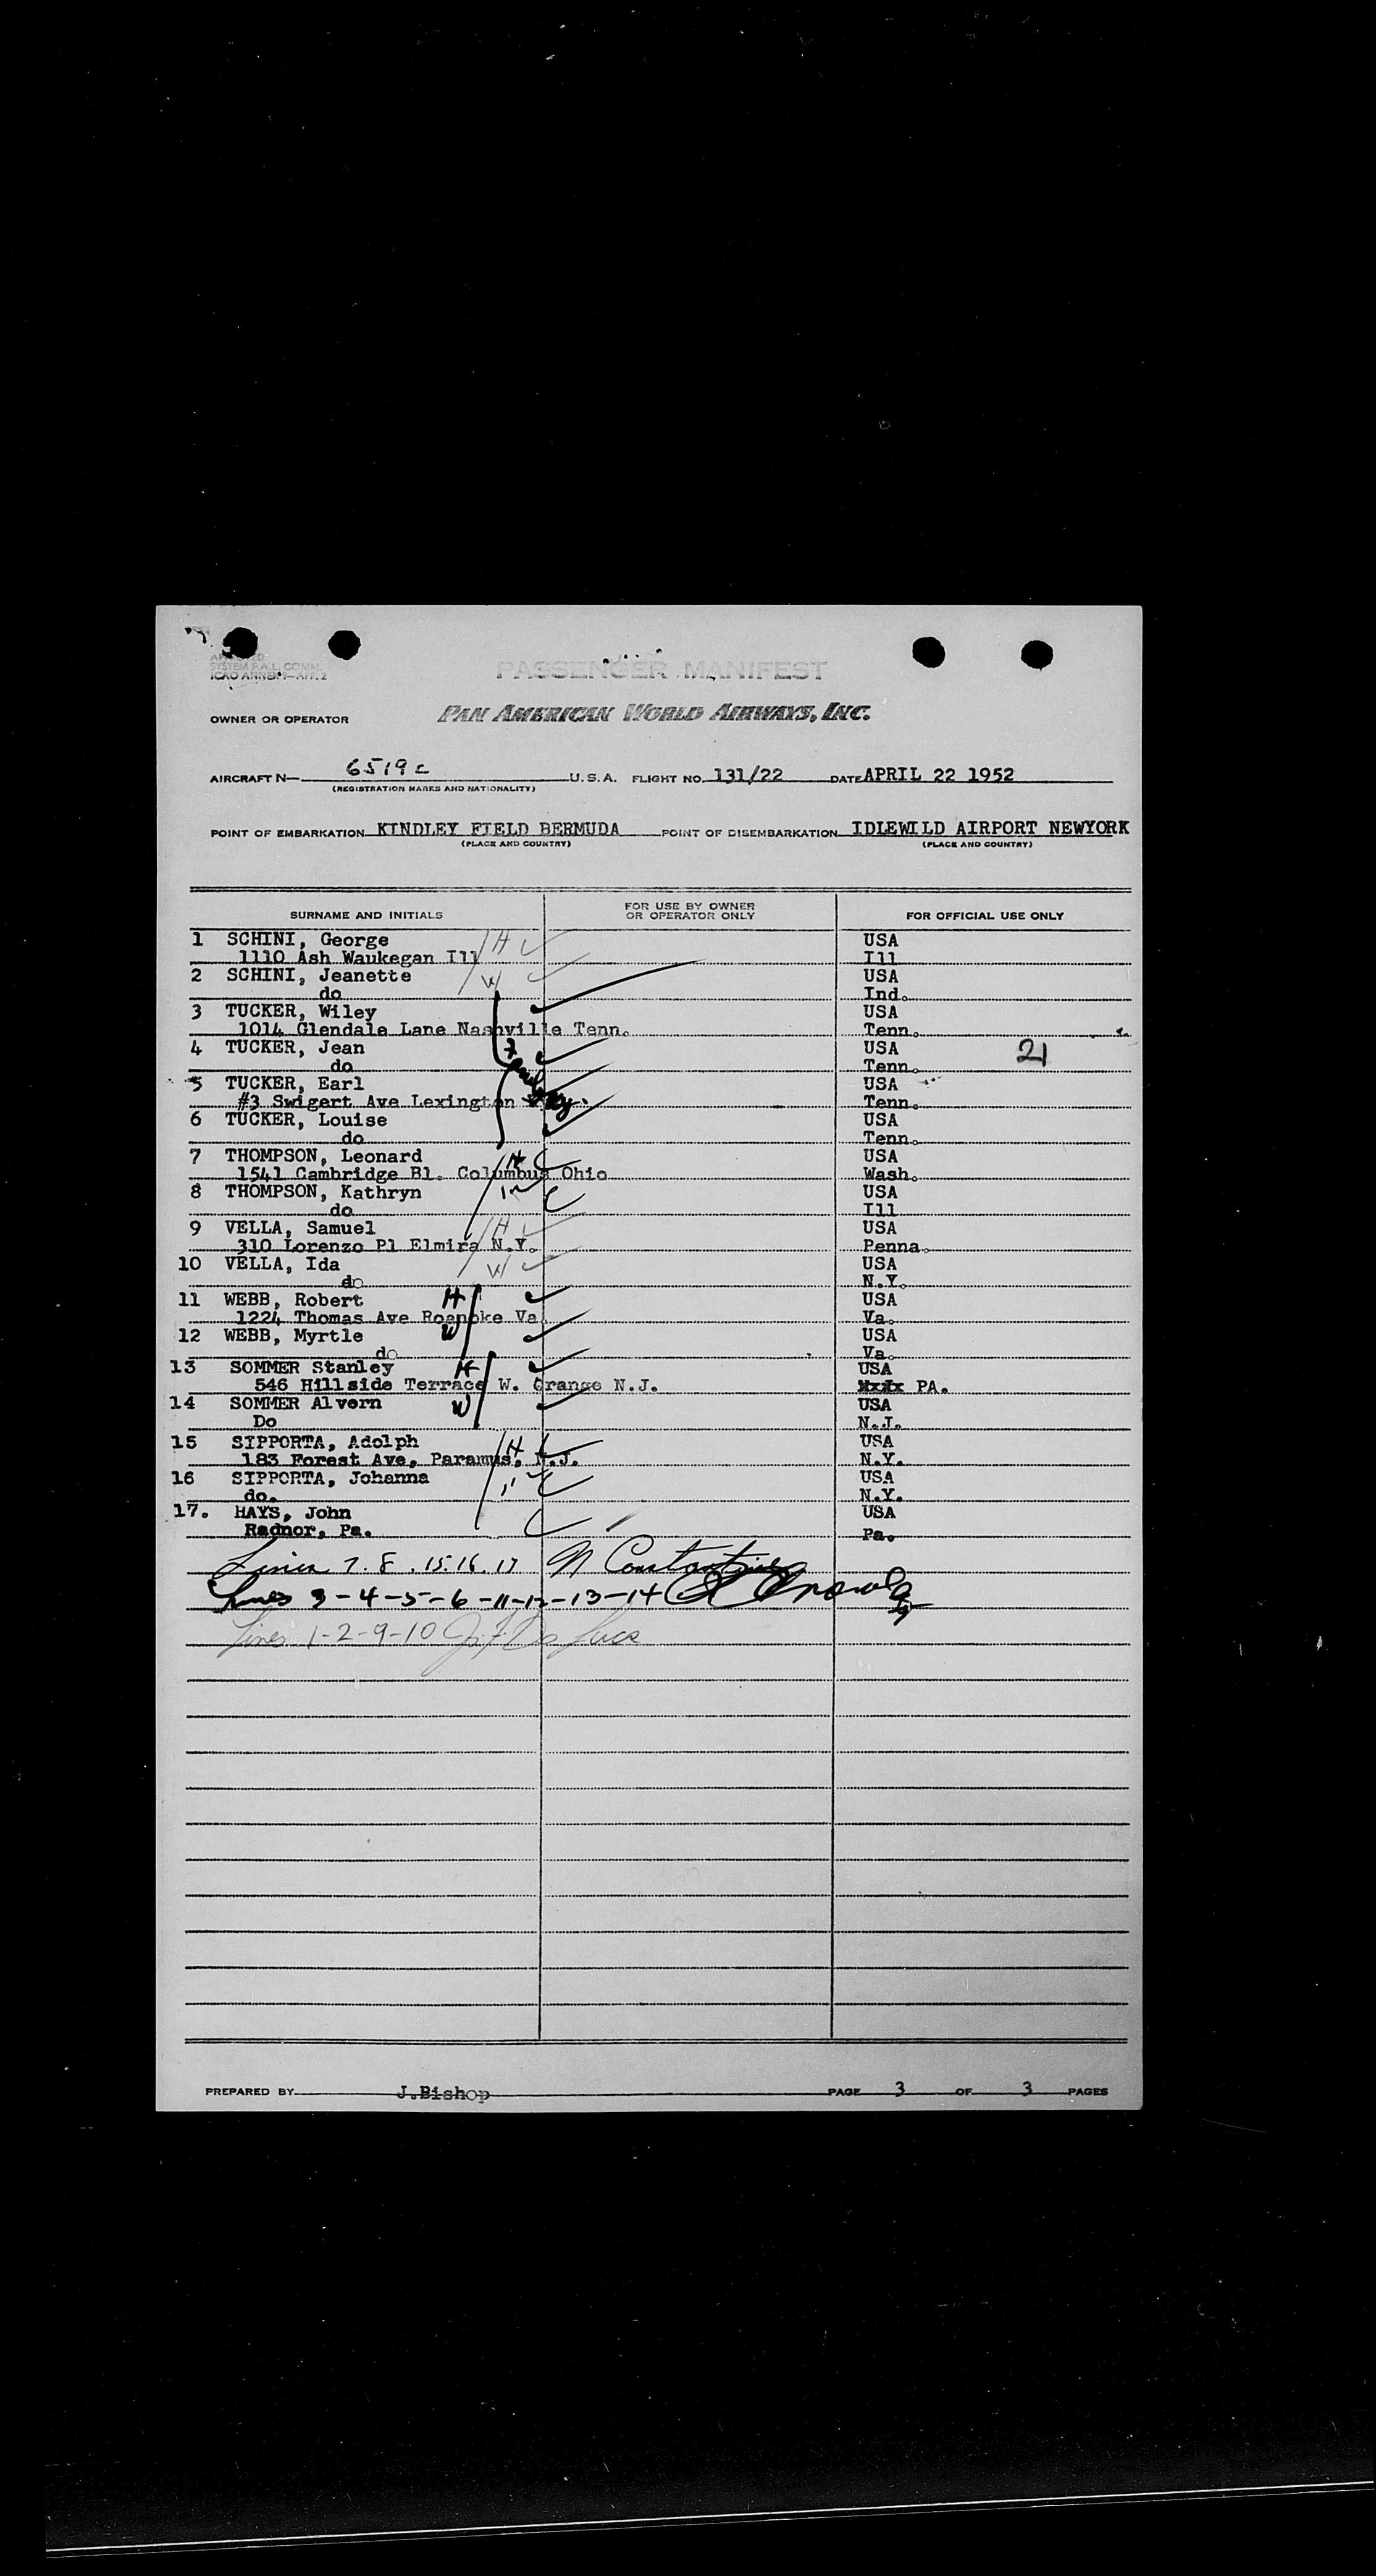 APPROVED
SYSTEM F.A.L. COMM.
ICAO ANNEX 9—APP. 2
PASSENGER MANIFEST
OWNER OR OPERATOR PAN AMERICAN WORLD AIRWAYS, INC.
AIRCRAFT N— 6519c U.S.A. FLIGHT NO. 131/22 DATE APRIL 22 1952
(REGISTRATION MARKS AND NATIONALITY)
POINT OF EMBARKATION KINDLEY FIELD BERMUDA POINT OF DISEMBARKATION IDLEWILD AIRPORT NEWYORK
(PLACE AND COUNTRY) (PLACE AND COUNTRY)
SURNAME AND INITIALS FOR USE BY OWNER OR OPERATOR ONLY FOR OFFICIAL USE ONLY
1 SCHINI, George H USA
1110 Ash Waukegan Ill Ill
2 SCHINI, Jeanette W USA
do Ind.
3 TUCKER, Wiley USA
1014 Glendale Lane Nashville Tenn. Tenn.
4 TUCKER, Jean USA 21
do Tenn.
5 TUCKER, Earl USA
#3 Swigert Ave Lexington Ky. Tenn.
6 TUCKER, Louise USA
do Tenn.
7 THOMPSON, Leonard H USA
1541 Cambridge Bl. Columbus Ohio Wash.
8 THOMPSON, Kathryn USA
do Ill
9 VELLA, Samuel H USA
310 Lorenzo Pl Elmira N.Y. Penna.
10 VELLA, Ida W USA
do N.Y.
11 WEBB, Robert H USA
1224 Thomas Ave Roanoke Va. Va.
12 WEBB, Myrtle W USA
do Va.
13 SOMMER Stanley H USA
546 Hillside Terrace W. Orange N.J. PA.
14 SOMMER Alvern W USA
Do N.J.
15 SIPPORTA, Adolph H USA
183 Forest Ave, Paramus, N.J. N.Y.
16 SIPPORTA, Johanna USA
do. N.Y.
17. HAYS, John USA
Radnor, Pa. Pa.
Lines 7. 8. 15. 16. 17 N Constantine
Lines 3-4-5-6-11-12-13-14
Lines 1-2-9-10
PREPARED BY J.Bishop PAGE 3 OF 3 PAGES